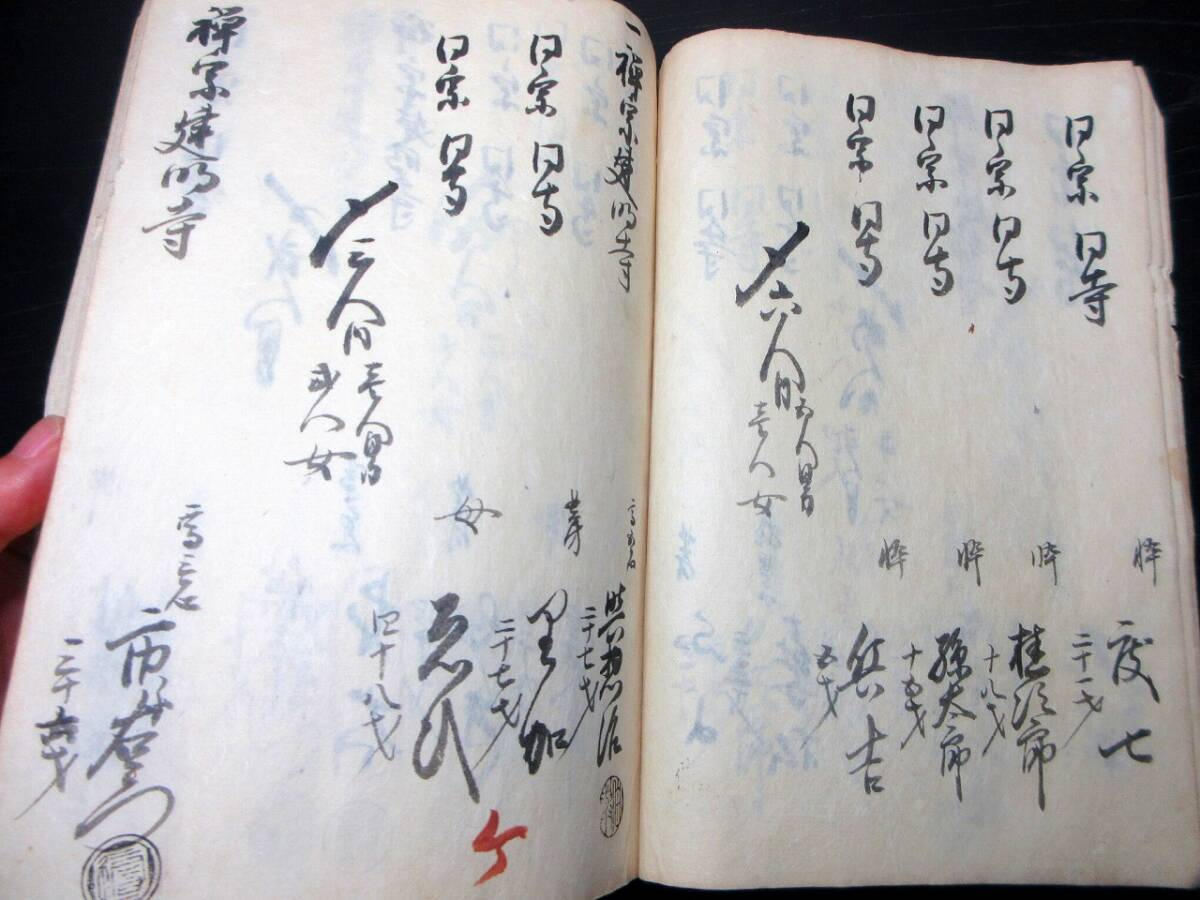 同宗 同寺 忰 度七 二十一才
同宗 同寺 忰 桂次郎 十八才
同宗 同寺 忰 孫太郎 十五才
同宗 同寺 忰 兵吉 五才
〆六人内 五人男 壱人女
一禅宗建明寺 高五石 二十七才
同宗 同寺 妻 里加 二十七才
同宗 同寺 母 四十八才
〆三人内 壱人男 弐人女
禅宗建明寺 市右衛門
ケ